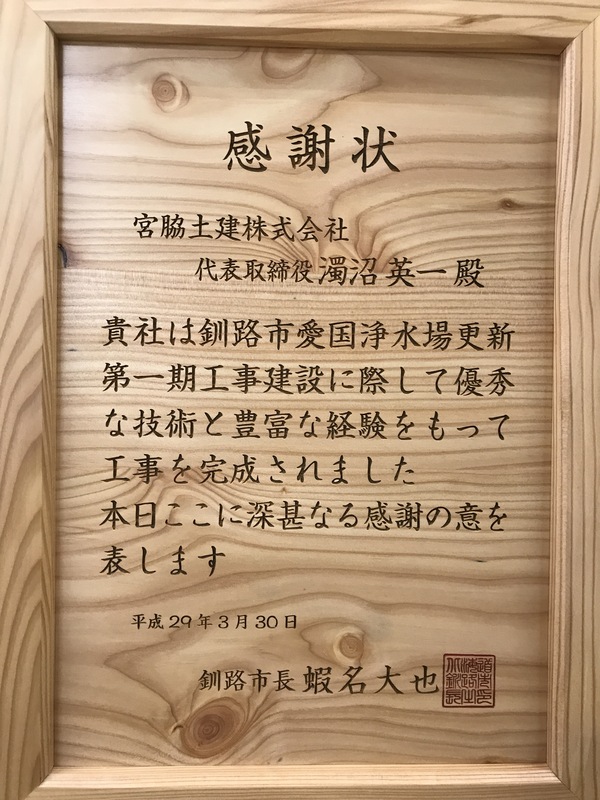 感謝状
宮脇土建株式会社
代表取締役 濁沼英一殿
貴社は釧路市愛国浄水場更新
第一期工事建設に際して優秀
な技術と豊富な経験をもって
工事を完成されました
本日ここに深甚なる感謝の意を
表します
平成29年3月30日
釧路市長 蝦名大也